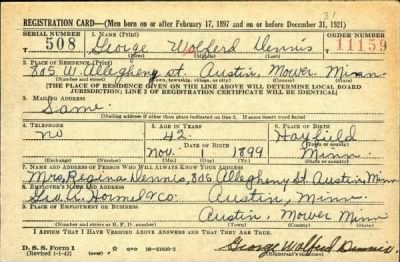 REGISTRATION CARD—(Men born on or after February 17, 1897 and on or before December 31, 1921)
SERIAL NUMBER 1. NAME (Print) ORDER NUMBER
T 508 George Wolferd Dennis 11159
(First) (Middle) (Last)
2. PLACE OF RESIDENCE (Print)
805 W. Allegheny St. Austin, Mower, Minn
(Number and street) (Town, township, village, or city) (County) (State)
[THE PLACE OF RESIDENCE GIVEN ON THE LINE ABOVE WILL DETERMINE LOCAL BOARD
JURISDICTION; LINE 2 OF REGISTRATION CERTIFICATE WILL BE IDENTICAL]
3. MAILING ADDRESS
Same
[Mailing address if other than place indicated on line 2. If same insert word same]
4. TELEPHONE 5. AGE IN YEARS 6. PLACE OF BIRTH
no 42 Hayfield
DATE OF BIRTH (Town or county)
Nov. 1 1899 Minn
(Exchange) (Number) (Mo.) (Day) (Yr.) (State or country)
7. NAME AND ADDRESS OF PERSON WHO WILL ALWAYS KNOW YOUR ADDRESS
Mrs. Regina Dennis, 805 Allegheny St Austin, Minn
8. EMPLOYER'S NAME AND ADDRESS
Geo. A. Hormel & Co. Austin, Minn.
9. PLACE OF EMPLOYMENT OR BUSINESS
Austin, Mower Minn
(Number and street or R. F. D. number) (Town) (County) (State)
I AFFIRM THAT I HAVE VERIFIED ABOVE ANSWERS AND THAT THEY ARE TRUE.
D. S. S. Form 1
(Revised 1-1-42) (over) 16—21630-2 George Wolferd Dennis
(Registrant's signature)